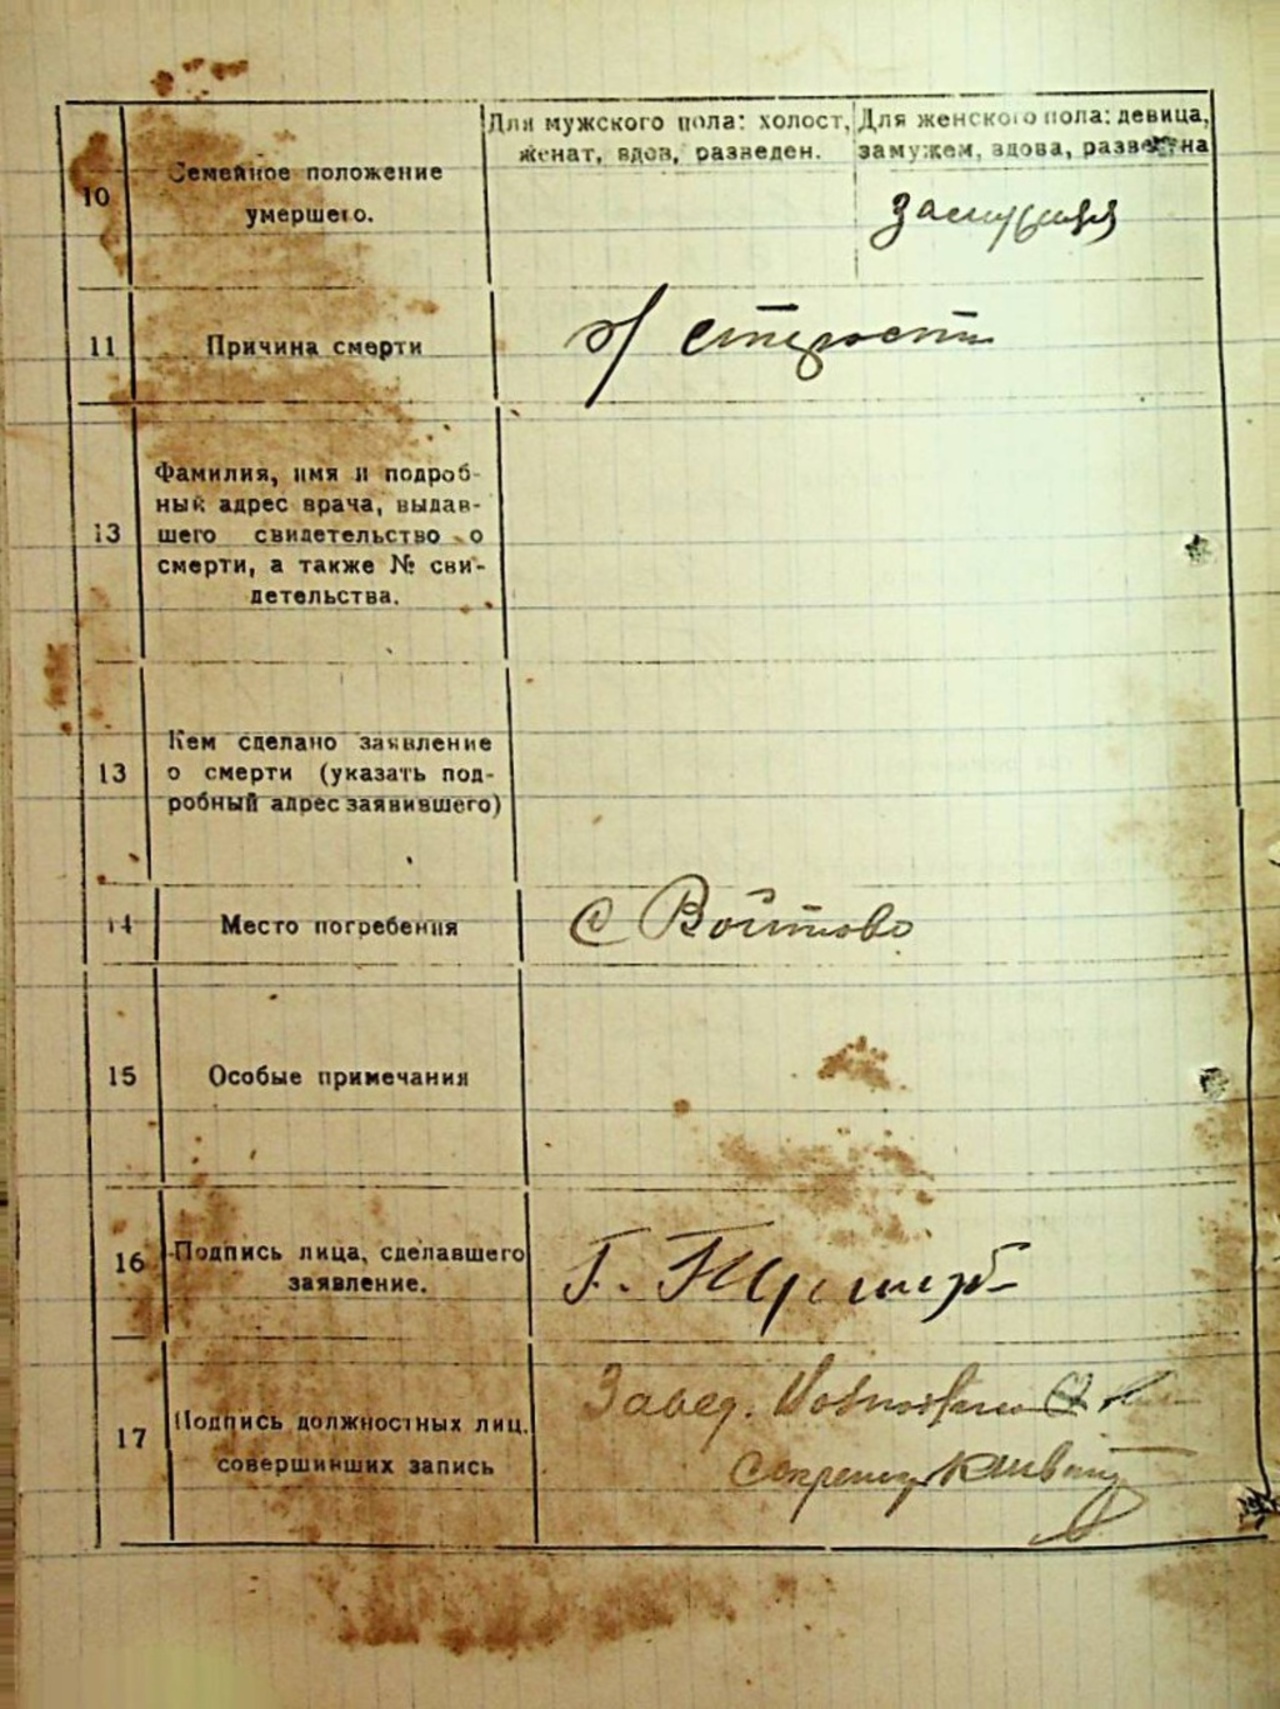 Для мужского пола: холост,
женат, вдов, разведен.
Для женского пола: девица,
замужем, вдова, разведена
10
Семейное положение
умершего.
11
Причина смерти
13
Фамилия, имя и подроб-
ный адрес врача, выдав-
шего свидетельство о
смерти, а также № сви-
детельства.
13
Кем сделано заявление
о смерти (указать под-
робный адрес заявившего)
14
Место погребения
С Войтово
15
Особые примечания
16
Подпись лица, сделавшего
заявление.
Г.
17
Подпись должностных лиц,
совершивших запись
Завед.